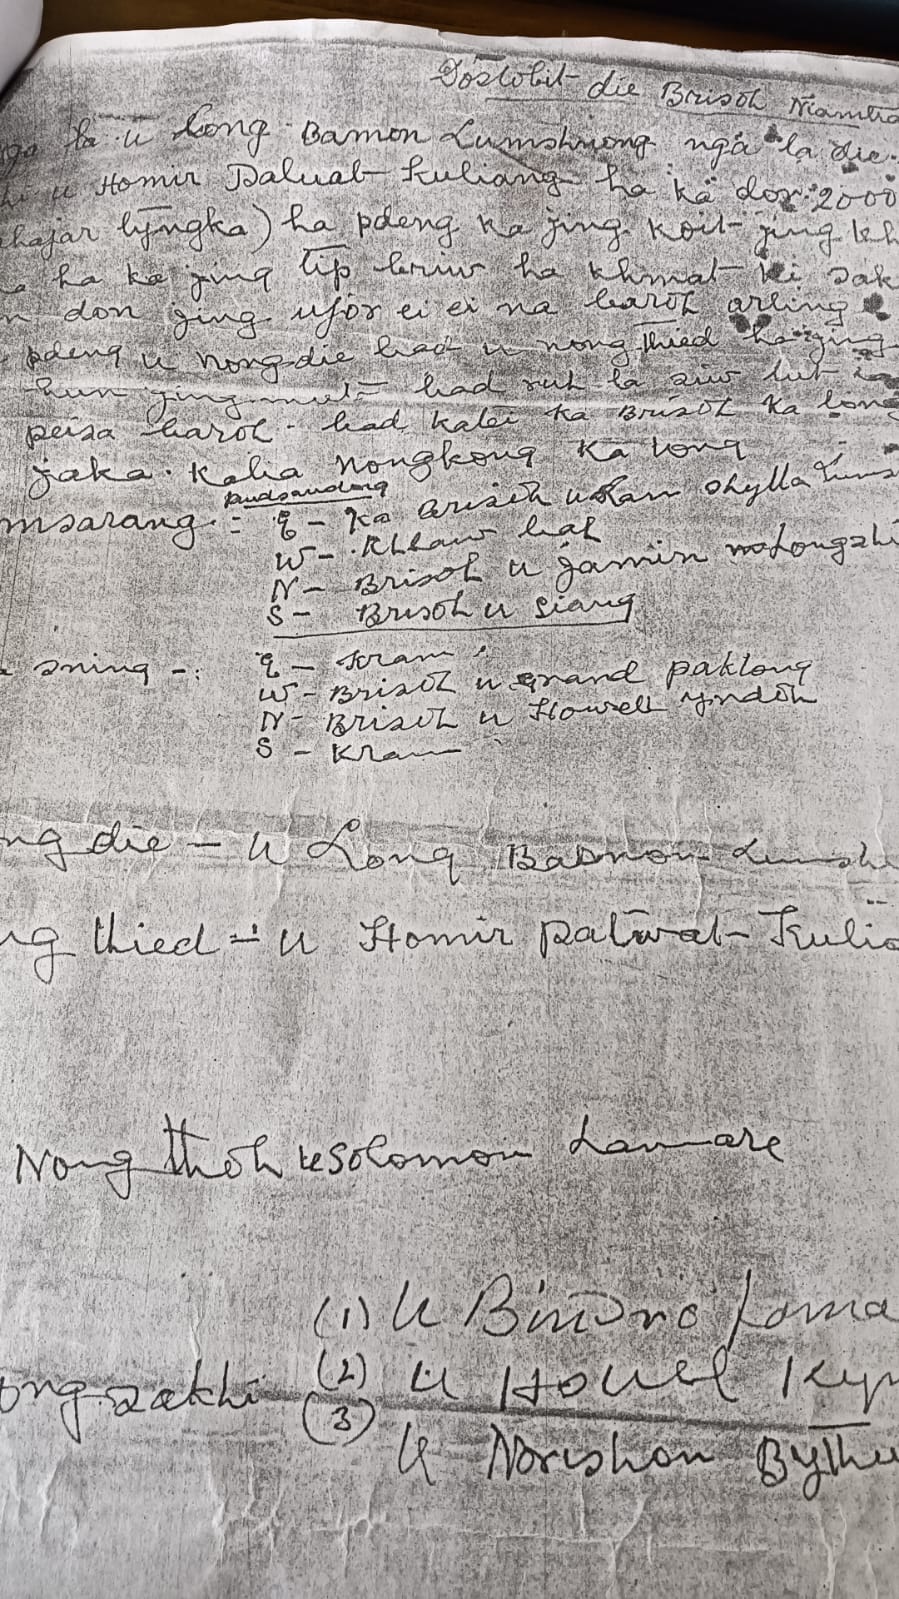 Dostobit die Brisoh Niamtra
nga ba u Long Bamon Lumshnong nga la die
u Homir Daluat Kuliang ha ka dor 2000
hajar lyngka) ha pdeng ka jing koit jing kh
ha ka jing tip briw ha khmat ki sak
don jing ujor ei ei na baroh arling
pdeng u nongdie bad u nong thied ha jing
hun jingmut bad ruh la siw lut
peisa baroh. bad katei ka Brisoh ka long
jaka. Kaba Nongkong ka long
Pudsaudong
msarang := E - Ka Brisoh u Ram Shylla Lums
W - Khlaw bah
N - Brisoh u Jamin
S - Brisoh u Siang
sning -: E - Kram
W - Brisoh u Grand paklong
N - Brisoh u Howell Yndoh
S - Kram
ng die - u Long Bamon Lumshn
ng thied = u Homir Patwat Kulia
Nong thoh u Solomon Lamare
(1) U Lama
(2) U Houel Kyn
ongsakhi (3)
U Norishon Bythu